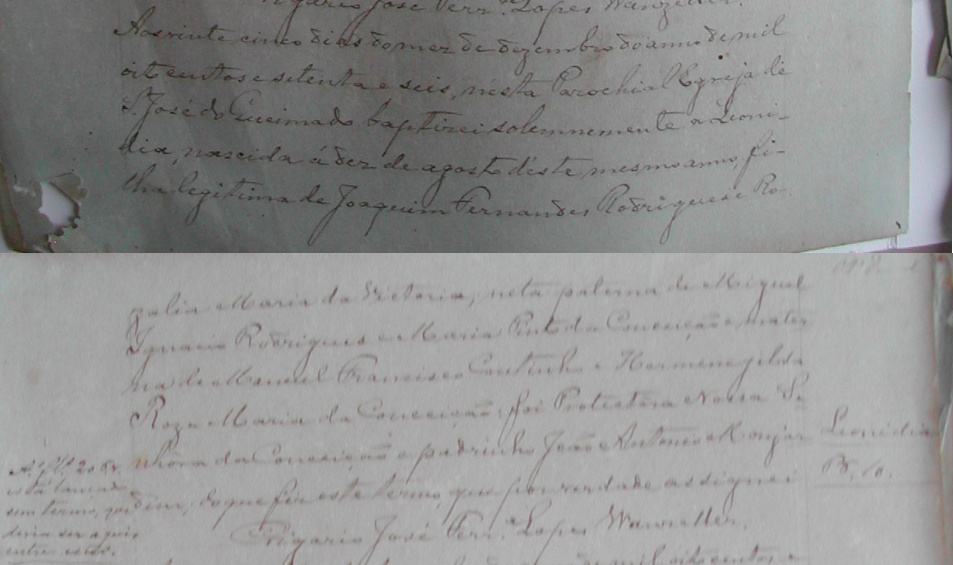 Vigario José Ferr.ª Lopes Wanzeller.
Aos vinte cinco dias do mez de dezembro do anno de mil
oitcentos e setenta e seis, nésta Parochial Egreja de
S. José do Queimado baptizei solemnemente a Leoni-
dia, nascida á dez de agosto déste mesmo anno, fi-
lha legitima de Joaquim Fernandes Rodrigues e Ro-
zalia Maria da Victoria, neta paterna de Miguel
Ignacio Rodrigues e Maria Pinto da Conceição e mater
na de Manuel Francisco Coutinho e Hermenegilda
Roza Maria da Conceição; foi Protectora Nossa Se
nhora da Conceição e padrinho João Antonio Monjar
dim; do que fiz este termo, que por verdade assignei
Vigario José Ferr.ª Lopes Wanzeller.
de mil oitocentos e
Leonidia
B. 10.
A fl. 20
está lançado
um termo, que
devia ser aqui
entre estes.